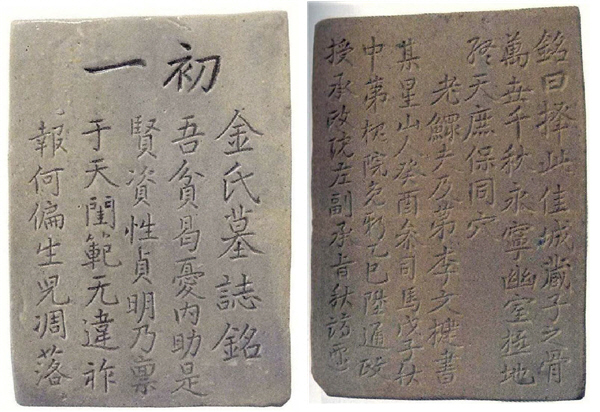 初一
金氏墓誌銘
吾貧曷憂內助是
賢資性貞明乃稟
于天閨範无違祚
報何偏生児凋落
銘曰擇此佳城藏子之骨
萬世千秋永寧幽室極地
終天庶保同穴
老鰥夫及第李文楗書
其星山人癸酉忝司馬戊子秋
中第槐院免新乙巳陞通政
授承政院左副承旨秋謫